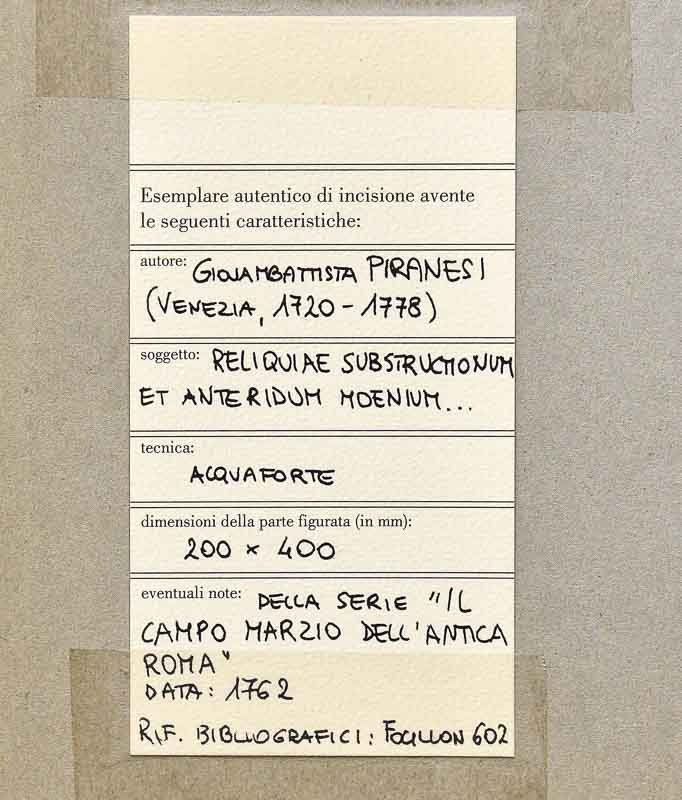 Esemplare autentico di incisione avente
le seguenti caratteristiche:
autore: GIOVAMBATTISTA PIRANESI
(VENEZIA, 1720 - 1778)
soggetto: RELIQUIAE SUBSTRUCTIONUM
ET ANTERIDUM MOENIUM...
tecnica:
ACQUAFORTE
dimensioni della parte figurata (in mm):
200 × 400
eventuali note: DELLA SERIE "IL
CAMPO MARZIO DELL'ANTICA
ROMA"
DATA: 1762
RIF. BIBLIOGRAFICI: FOCILLON 602